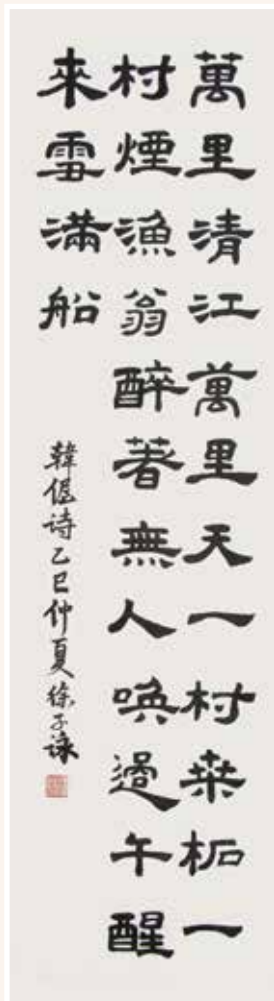 萬里清江萬里天一村桒柘一
村煙漁翁醉著無人唤過午醒
來雪滿船
韓偓诗乙巳仲夏徐子詠